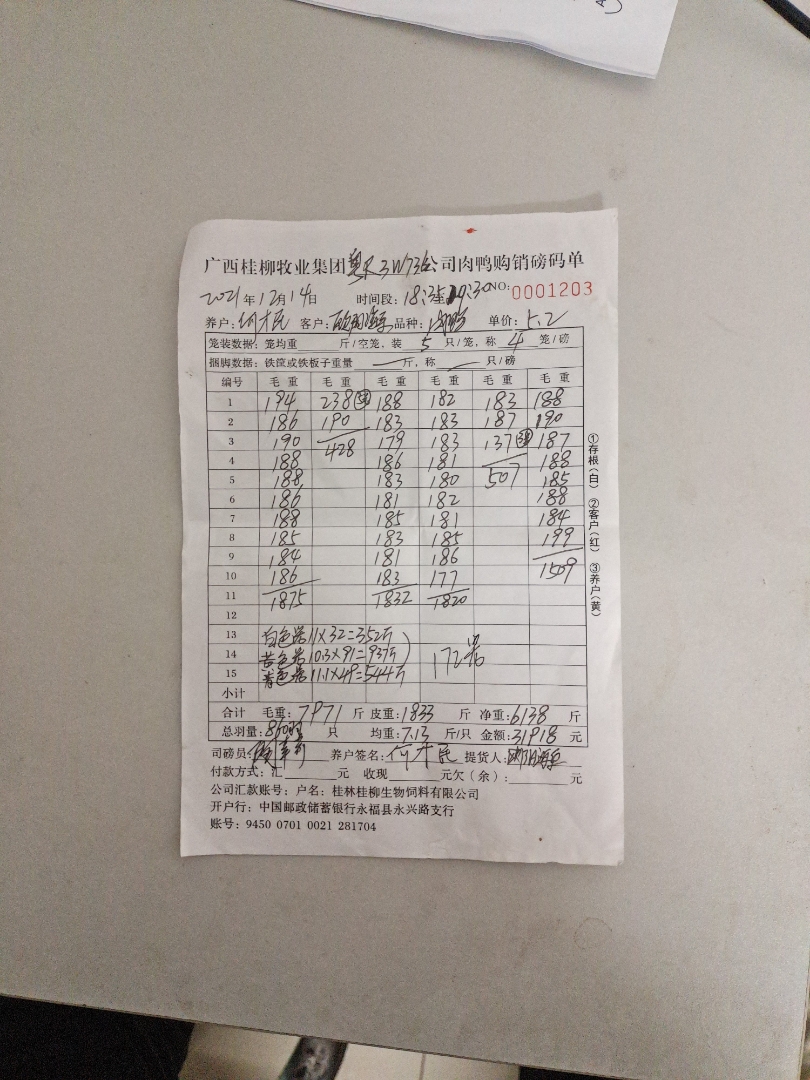 广西桂柳牧业集团 公司肉鸭购销磅码单
2021年12月14日 时间段:18:35至19:30 NO:0001203
养户:何才民 客户: 品种: 单价:5.2
笼装数据:笼均重 斤/空笼,装 5 只/笼,称 4 笼/磅
捆脚数据:铁筐或铁板子重量 斤,称 只/磅
编号 毛重 毛重 毛重 毛重 毛重 毛重
1 194 238 188 182 183 188
2 186 190 183 183 187 190
3 190 428 179 183 137 187
4 188 186 181 188
5 188 183 180 507 185
6 186 181 182 188
7 188 185 181 184
8 185 183 185 199
9 184 181 186
10 186 183 177 1509
11 1875 1832 1820
12
13 白色笼11×32=352斤
14 蓝色笼10.3×91=937斤 172笼
15 青色笼11.1×49=544斤
小计
合计 毛重:7971 斤 皮重:1833 斤 净重:6138 斤
总羽量:860羽 只 均重:7.13 斤/只 金额:31918 元
司磅员: 养户签名:何才民 提货人:
付款方式:汇 元 收现 元欠(余): 元
公司汇款账号:户名:桂林桂柳生物饲料有限公司
开户行:中国邮政储蓄银行永福县永兴路支行
账号:9450 0701 0021 281704
①存根(白) ②客户(红) ③养户(黄)